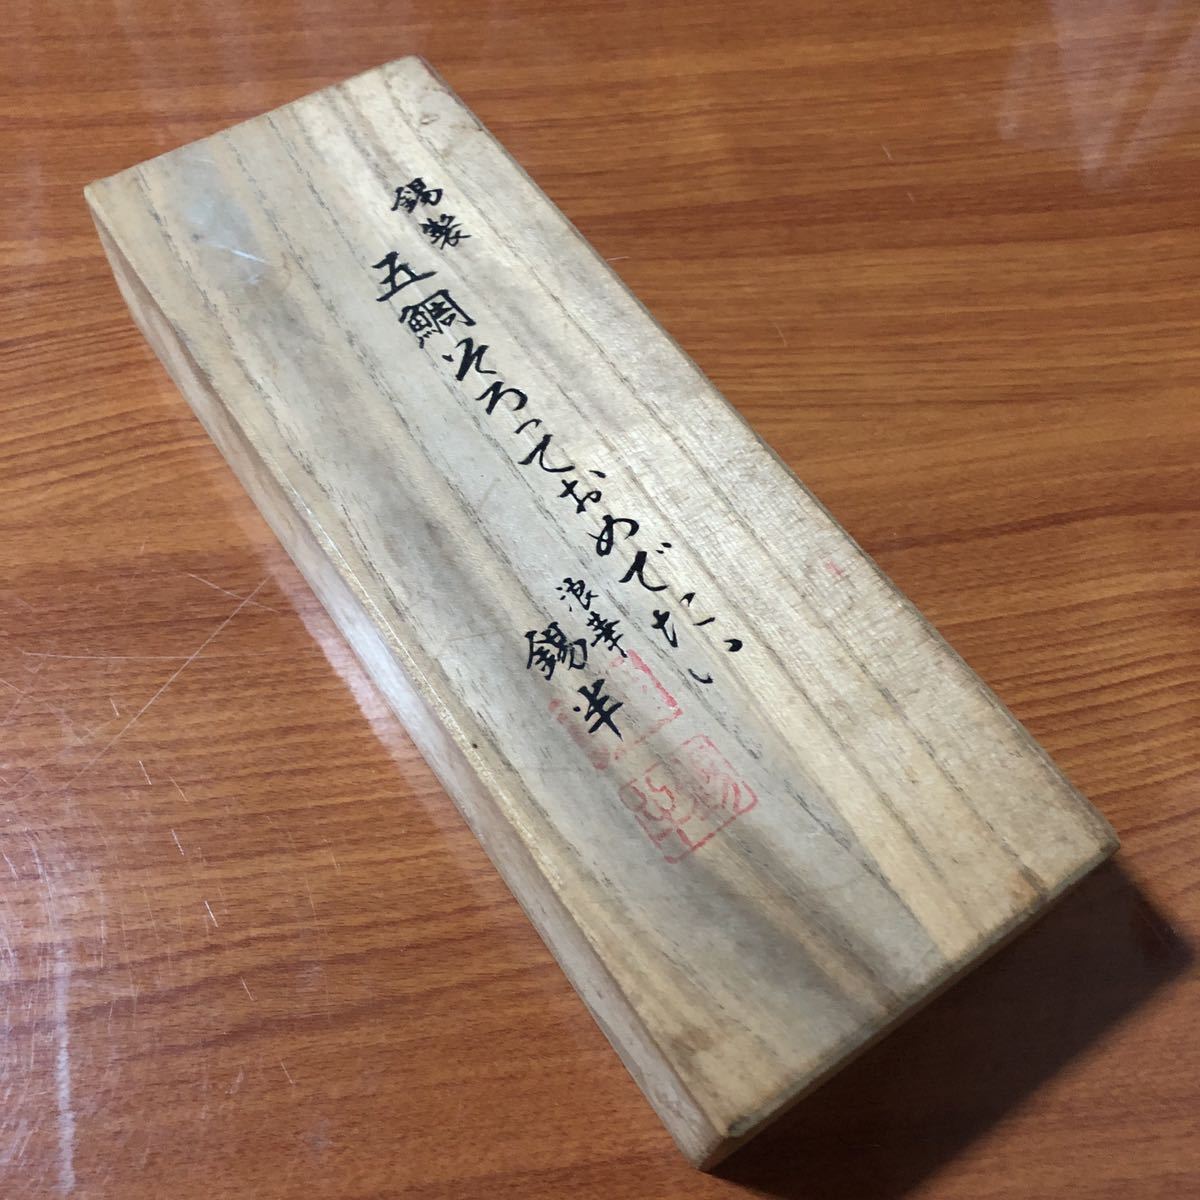 錫製
五鯛そろっておめでたい
浪華
錫半